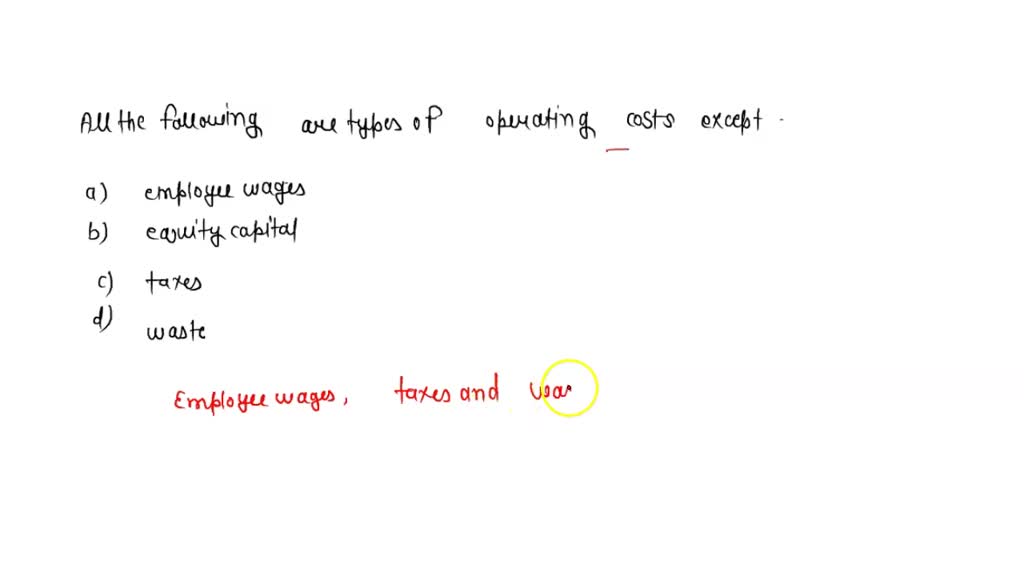 All the following are types of operating costs except .
a) employee wages
b) equity capital
c) taxes
d) waste
Employee wages, taxes and wa